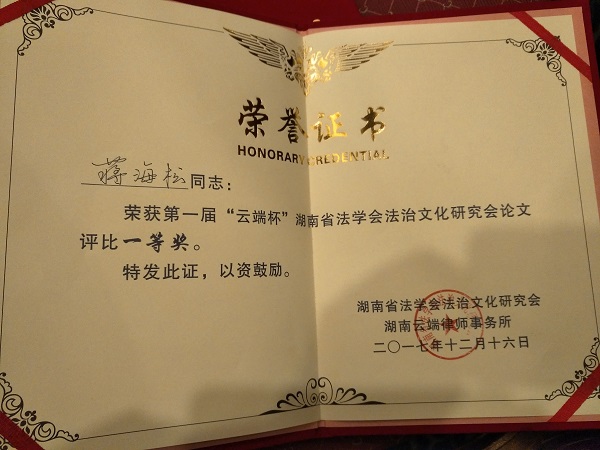 荣誉证书
HONORARY CREDENTIAL
蒋海松同志：
荣获第一届“云端杯”湖南省法学会法治文化研究会论文
评比一等奖。
特发此证，以资鼓励。
湖南省法学会法治文化研究会
湖南云端律师事务所
二〇一七年十二月十六日